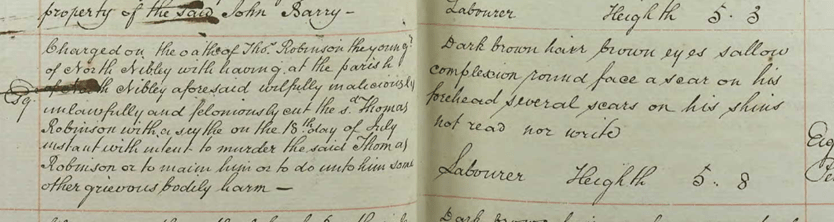 property of the said John Barry —
Charged on the oath of Thos. Robinson the young
of North Nibley with having at the parish
of North Nibley aforesaid wilfully maliciously
unlawfully and feloniously cut the sd. Thomas
Robinson with a scythe on the 18th day of July
instant with intent to murder the said Thomas
Robinson or to maim him or to do unto him some
other grievous bodily harm —
Esq.
Labourer Heighth 5. 3
Dark brown hair brown eyes sallow
complexion round face a scar on his
forehead several scars on his shins
not read nor write
Labourer Heighth 5. 8
Dark brown